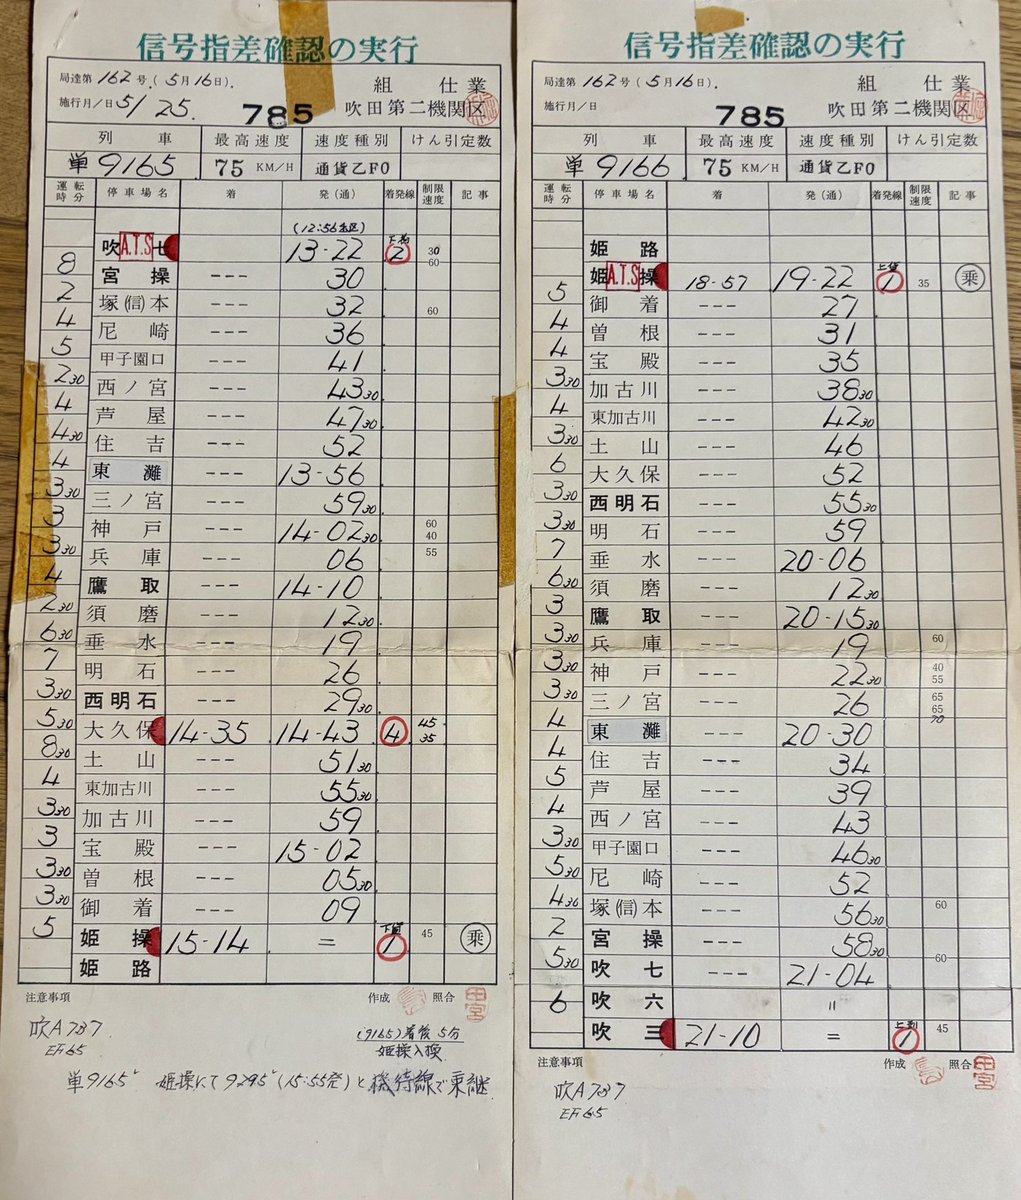 信号指差確認の実行
局達第162号(5月16日). 組 仕業
施行月/日 5/25. 785 吹田第二機関区
列車 最高速度 速度種別 けん引定数
単9165 75 KM/H 通貨乙F0
運転時分 停車場名 着 発(通) 着発線 制限速度 記事
(12:56出区)
吹 A.T.S 七 13-22 下着 2 30 60
8
宮操 --- 30
2
塚(信)本 --- 32 60
4
尼崎 --- 36
5
甲子園口 --- 41
2 30
西ノ宮 --- 43 30
4
芦屋 --- 47 30
4 30
住吉 --- 52
4
東灘 --- 13-56
3 30
三ノ宮 --- 59 30
3
神戸 --- 14-02 30 60 40
3 30
兵庫 --- 06 55
4
鷹取 --- 14-10
2 30
須磨 --- 12 30
6 30
垂水 --- 19
7
明石 --- 26
3 30
西明石 --- 29 30
5 30
大久保 14-35 14-43 4 45 35
8 30
土山 --- 51 30
4
東加古川 --- 55 30
3 30
加古川 --- 59
3
宝殿 --- 15-02
3 30
曽根 --- 05 30
3 30
御着 --- 09
5
姫操 15-14 = 下貨 1 45 乗
姫路
注意事項 作成 照合 田宮
吹A787
EF65
(9165)着後5分
姫操入換
単9165レ 姫操にて9295レ(15:55発)と機待線で乗継
信号指差確認の実行
局達第162号(5月16日). 組 仕業
施行月/日 785 吹田第二機関区
列車 最高速度 速度種別 けん引定数
単9166 75 KM/H 通貨乙F0
運転時分 停車場名 着 発(通) 着発線 制限速度 記事
姫路
姫 A.T.S 操 18-57 19-22 上貨 1 35 乗
5
御着 --- 27
4
曽根 --- 31
4
宝殿 --- 35
3 30
加古川 --- 38 30
4
東加古川 --- 42 30
3 30
土山 --- 46
6
大久保 --- 52
3 30
西明石 --- 55 30
3 30
明石 --- 59
7
垂水 --- 20-06
6 30
須磨 --- 12 30
3
鷹取 --- 20-15 30
3 30
兵庫 --- 19 60
3 30
神戸 --- 22 30 40 55
3 30
三ノ宮 --- 26 65 65 70
4
東灘 --- 20-30
4
住吉 --- 34
5
芦屋 --- 39
4
西ノ宮 --- 43
3 30
甲子園口 --- 46 30
5 30
尼崎 --- 52
4 30
塚(信)本 --- 56 30 60
2
宮操 --- 58 30
5 30
吹七 --- 21-04 60
6
吹六 〃
吹三 21-10 = 上到 1 45
注意事項 作成 照合 田宮
吹A787
EF65